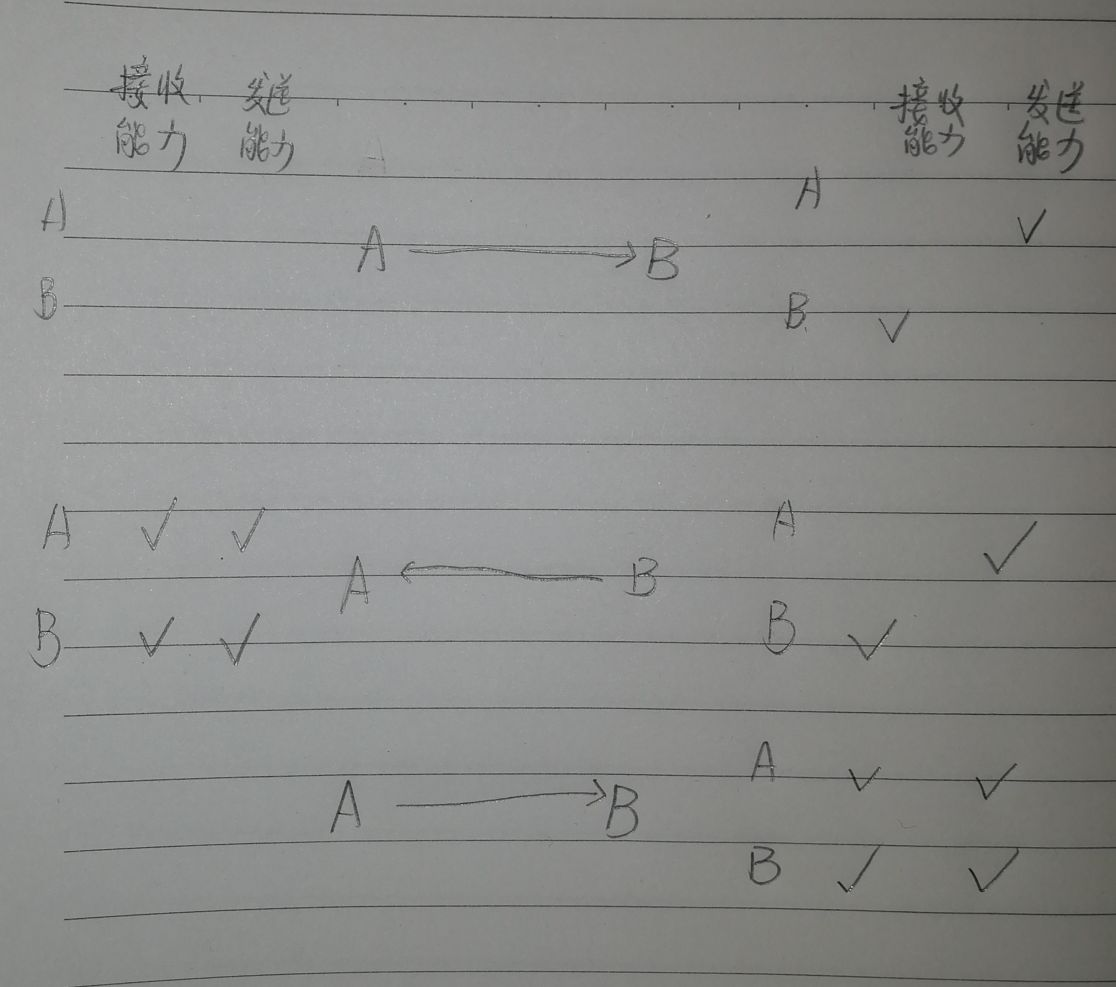 接收 发送 接收 发送
能力 能力 能力 能力
A A
A → B ✓
B B ✓
A ✓ ✓ A ✓
A ← B
B ✓ ✓ B ✓
A ✓ ✓
A → B
B ✓ ✓